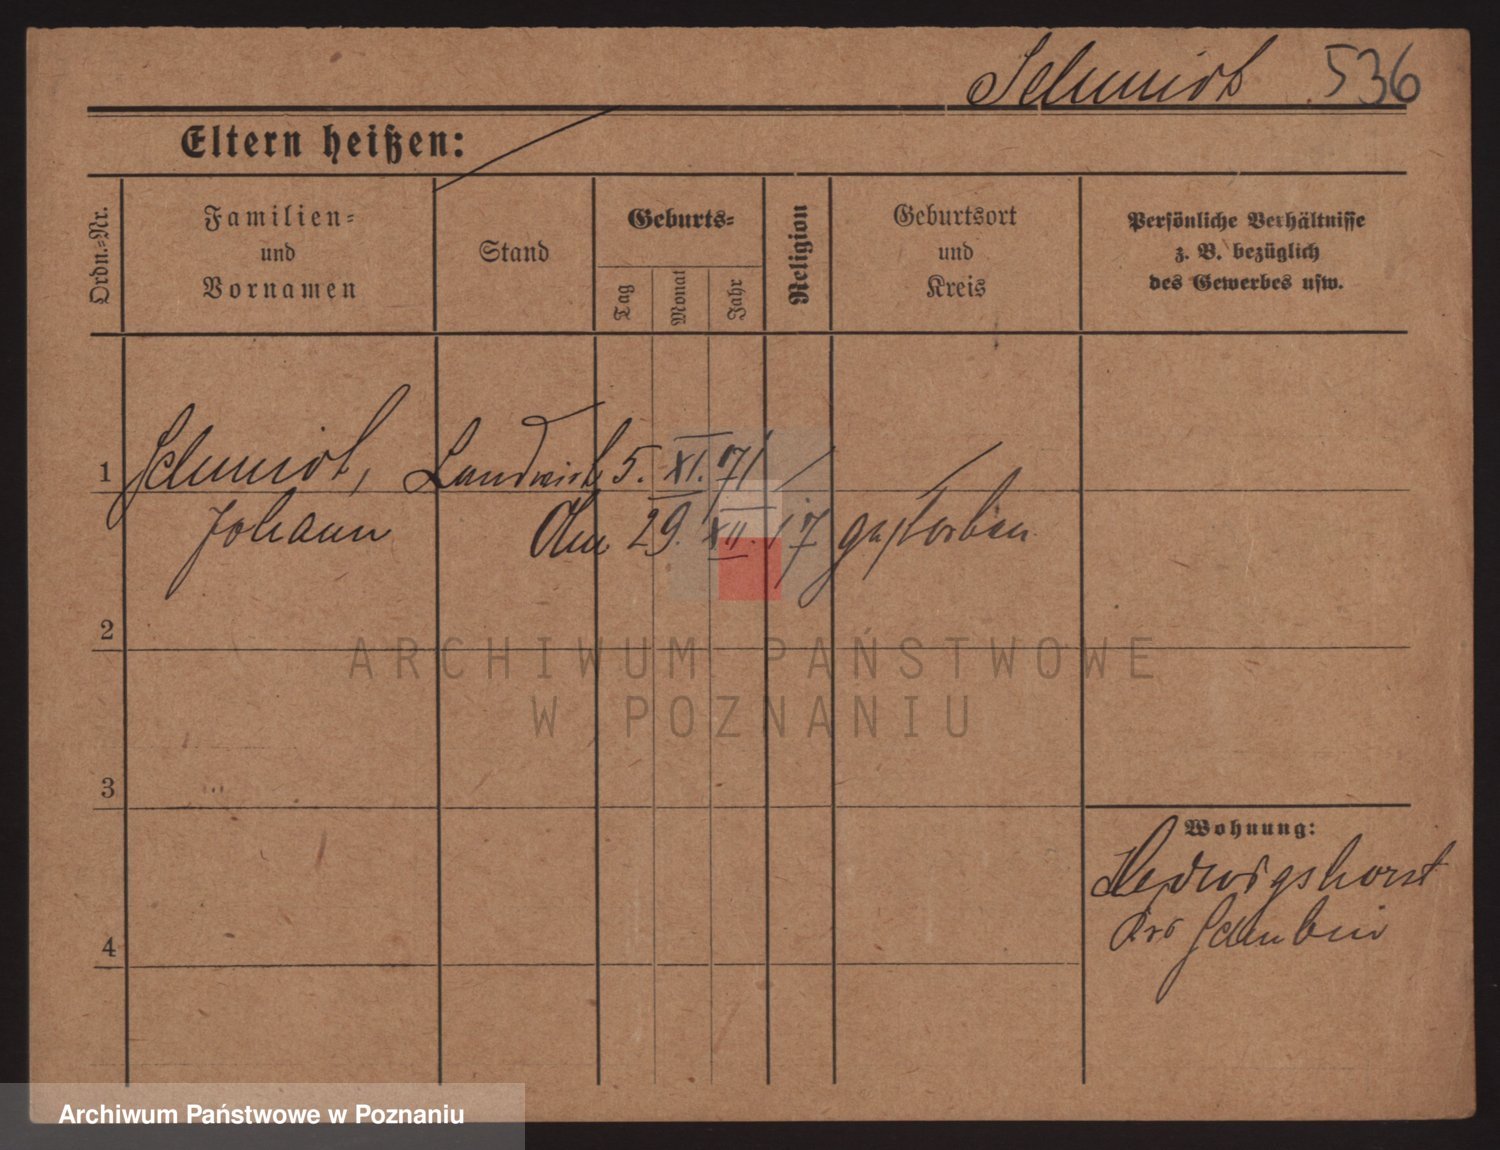 Schmidt 536
Eltern heißen:
Ordn.=Nr.
Familien=
und
Vornamen
Stand
Geburts=
Tag
Monat
Jahr
Religion
Geburtsort
und
Kreis
Persönliche Verhältnisse
z. B. bezüglich
des Gewerbes usw.
1 Schmidt, Landwirt 5. XI. 71 /
Johann Am 29. XII. 17 gestorben
2
ARCHIWUM PAŃSTWOWE
W POZNANIU
3
Wohnung:
Hedwigshorst
Krs Schubin
4
Archiwum Państwowe w Poznaniu